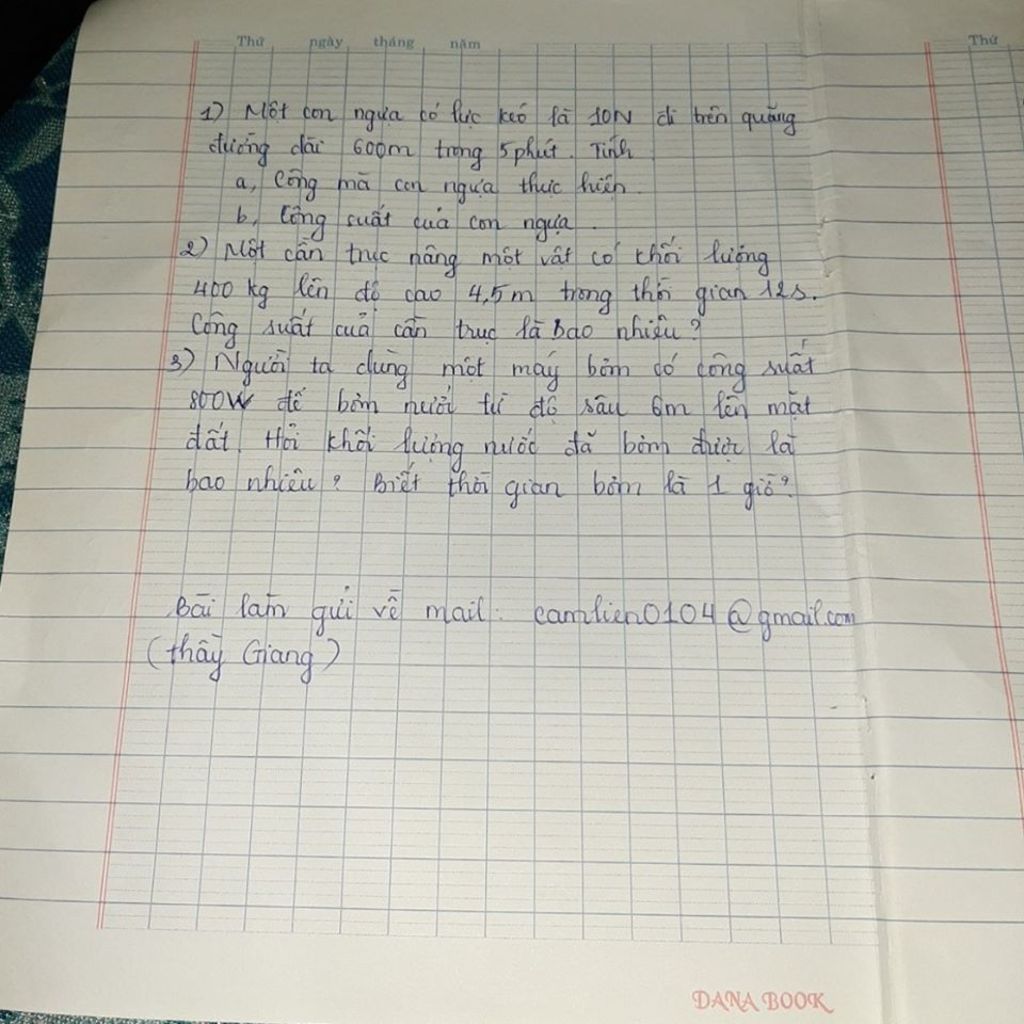 Thứ ngày tháng năm
Thứ
1) Một con ngựa có lực kéo là 10N đi trên quãng
đường dài 600m trong 5 phút. Tính
a, Công mà con ngựa thực hiện.
b, Công suất của con ngựa.
2) Một cần trục nâng một vật có khối lượng
400 kg lên độ cao 4,5m trong thời gian 12s.
Công suất của cần trục là bao nhiêu?
3) Người ta dùng một máy bơm có công suất
800W để bơm nước từ độ sâu 6m lên mặt
đất. Hỏi khối lượng nước đã bơm được là
bao nhiêu? Biết thời gian bơm là 1 giờ?
Bài làm gửi về mail: camlien0104@gmail.com
(thầy Giang)
DANA BOOK